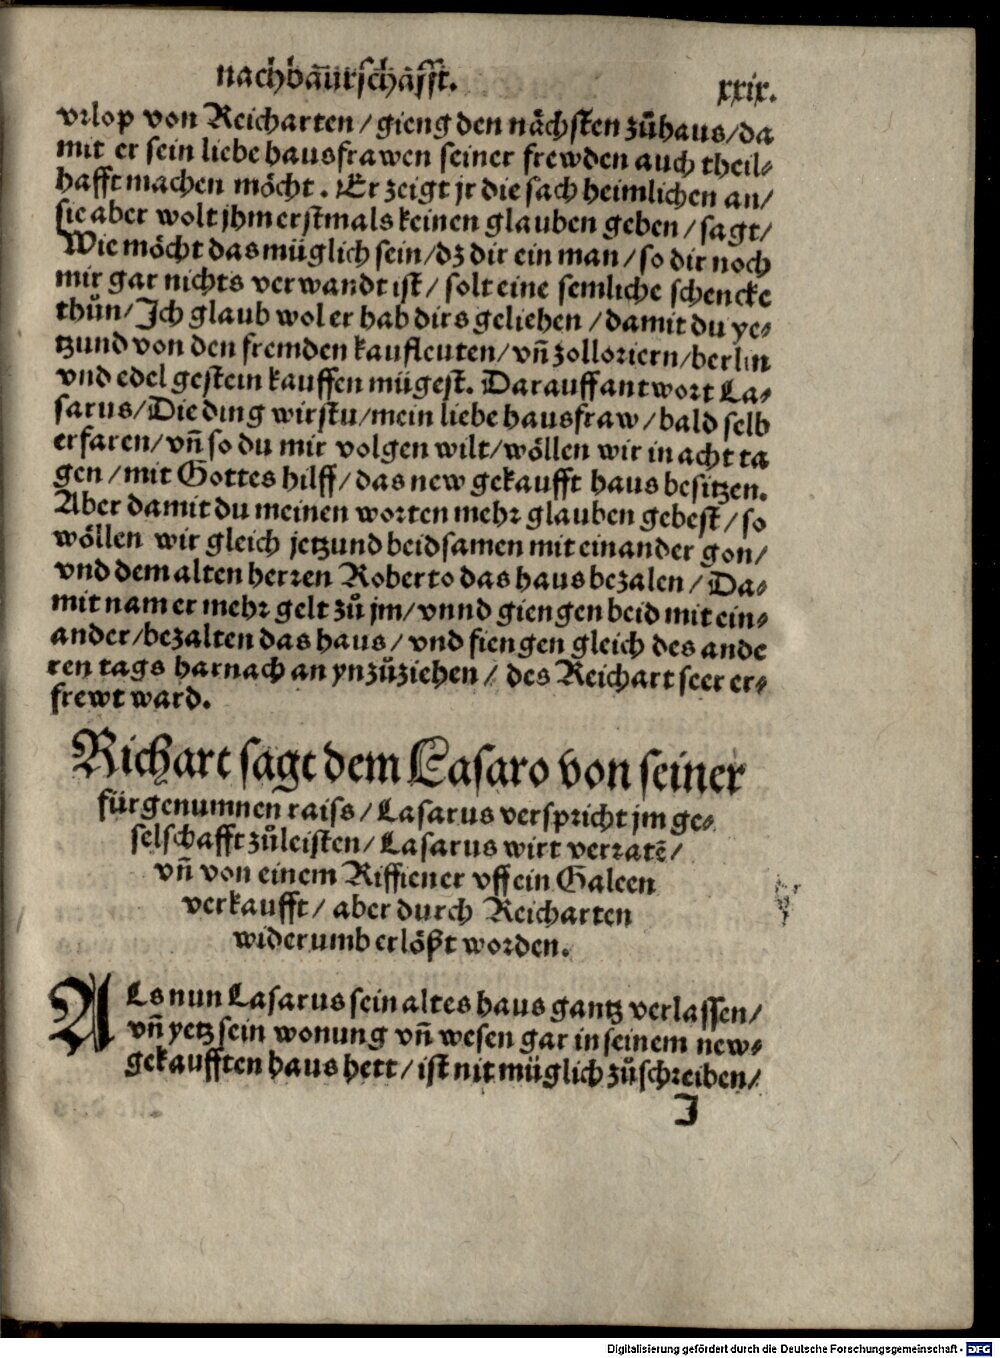 nachbaūrschafft. xxix.
vrlop von Reicharten / gieng den naͤchsten zuͦhaus / da
mit er sein liebe hausfrawen seiner frewden auch theil-
hafft machen moͤcht. Er zeigt jr die sach heimlichen an /
sie aber wolt jhm erstmals keinen glauben geben / sagt /
Wie moͤcht das müglich sein / dz dir ein man / so dir noch
mir gar nichts verwandt ist / solt eine semliche schencke
thuͦn / Jch glaub wol er hab dirs geliehen / damit du ye-
tzund von den fremden kaufleuten / vñ zolloriern / berlin
vnd edel gestein kauffen mügest. Darauff antwort La-
sarus / Die ding wirstu / mein liebe hausfraw / bald selb
erfaren / vñ so du mir volgen wilt / woͤllen wir in acht ta
gen / mit Gottes hilff / das new gekaufft haus besitzen.
Aber damit du meinen worten mehr glauben gebest / so
woͤllen wir gleich jetzund beidsamen mit einander gon /
vnd dem alten herren Roberto das haus bezalen / Da-
mit nam er mehr gelt zuͦ jm / vnnd giengen beid mit ein-
ander / bezalten das haus / vnd fiengen gleich des ande
ren tags harnach an ynzuͦziehen / des Reichart seer er-
frewt ward.
Richart sagt dem Lasaro von seiner
fürgenumnen raiss / Lasarus verspricht jm ge-
selschafft zuͦleisten / Lasarus wirt verratē /
vñ von einem Riffiener vff ein Galeen
verkaufft / aber durch Reicharten
widerumb erloͤßt worden.
ALs nun Lasarus sein altes haus gantz verlassen /
vñ yetz sein wonung vñ wesen gar in seinem new-
gekaufften haus hett / ist nit müglich zuͦschreiben /
J
Digitalisierung gefördert durch die Deutsche Forschungsgemeinschaft - DFG